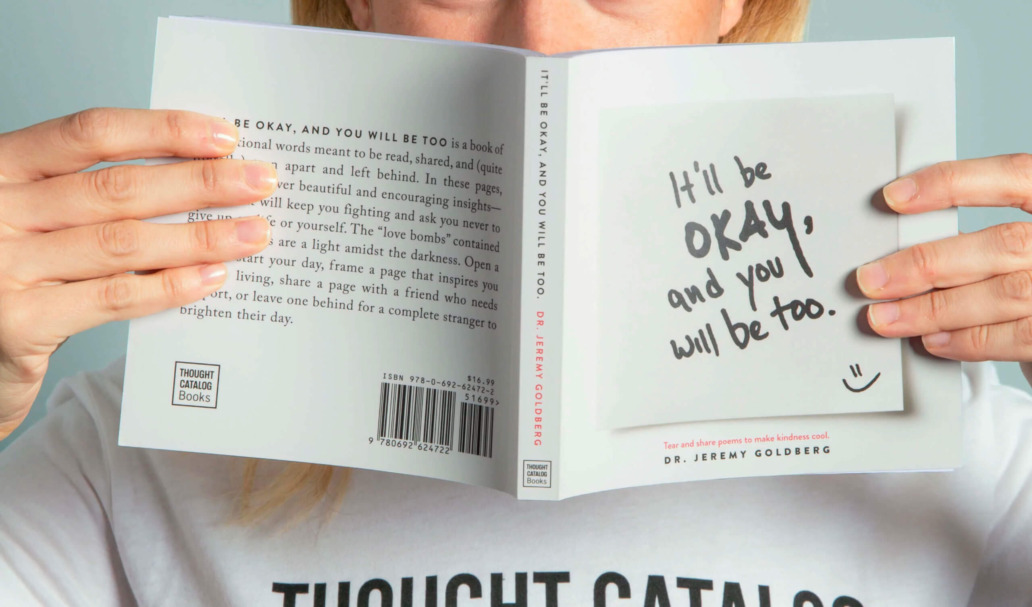 BE OKAY, AND YOU WILL BE TOO is a book of
words meant to be read, shared, and (quite
apart and left behind. In these pages,
beautiful and encouraging insights—
will keep you fighting and ask you never to
give up or yourself. The “love bombs” contained
are a light amidst the darkness. Open a
your day, frame a page that inspires you
living, share a page with a friend who needs
or leave one behind for a complete stranger to
brighten their day.
THOUGHT
CATALOG
Books
ISBN 978-0-692-62472-2
$16.99
51699>
9 780692 624722
IT'LL BE OKAY, AND YOU WILL BE TOO. DR. JEREMY GOLDBERG
THOUGHT
CATALOG
Books
It'll be
OKAY,
and you
will be too.
Tear and share poems to make kindness cool.
DR. JEREMY GOLDBERG
THOUGHT CATALOG